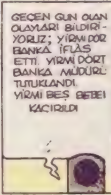 GEÇEN GÜN OLAN
OLAYLARI BİLDİRİ-
YORUZ; YİRMİ DÖR
BANKA İFLÂS
ETTİ. YİRMİ DÖRT
BANKA MÜDÜRÜ
TUTUKLANDI.
YİRMİ BEŞ BEBEK
KAÇIRILDI